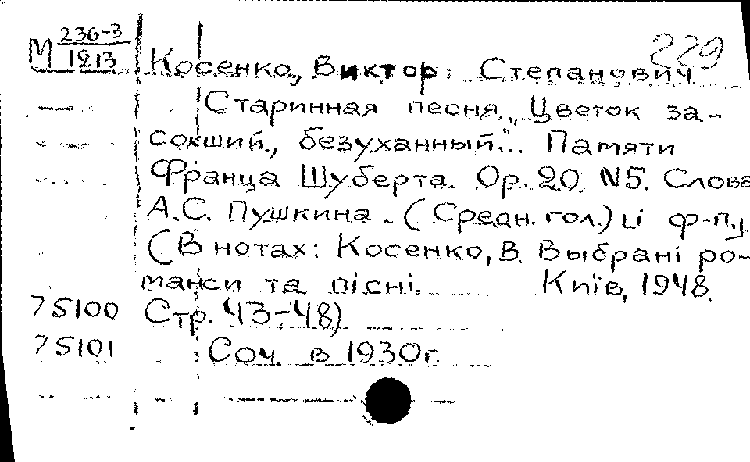 229
М 236-3
1213
Косенко, Виктор Степанович
Старинная песня „Цветок за-
сохший, безуханный“... Памяти
Франца Шуберта. Ор. 20 N5. Слова
А.С. Пушкина. (Средн. гол.) и ф-п.
(В нотах: Косенко, В. Выбрані ро-
манси та пісні. Київ, 1948.
75100 Стр. 43-48)
75101 Соч. в 1930г.